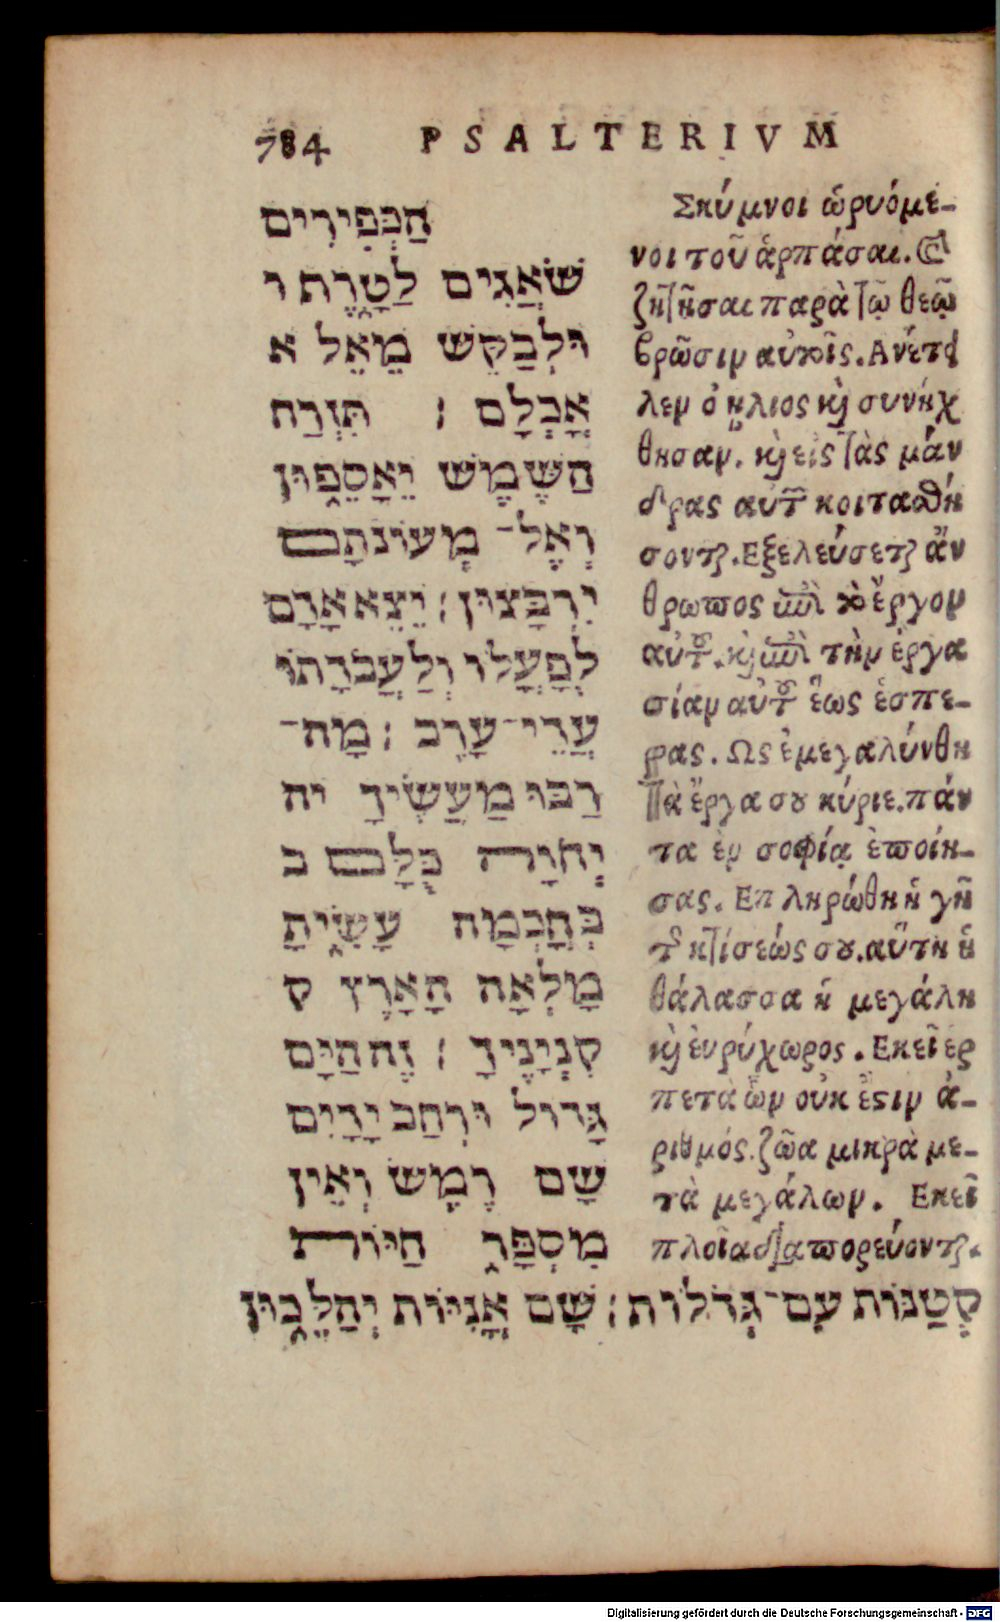 784 PSALTERIVM
הַכְּפִירִים
שֹׁאֲגִים לַטָּרֶת ו
וּלְבַקֵּשׁ מֵאֵל א
אָכְלָם ׃ תִּזְרַח
הַשֶּׁמֶשׁ יֵאָסֵפוּן
וְאֶל־ מְעוֹנֹתָם
יִרְבָּצוּן׃ יֵצֵא אָדָם
לְפָעֳלוֹ וְלַעֲבֹדָתוֹ
עֲדֵי־עָרֶב ׃ מָה־
רַבּוּ מַעֲשֶׂיךָ יה
יְהֹוָה כֻּלָּם ב
בְּחָכְמָה עָשִׂיתָ
מָלְאָה הָאָרֶץ ק
קִנְיָנֶיךָ ׃ זֶה הַיָּם
גָּדוֹל וּרְחַב יָדָיִם
שָׁם רֶמֶשׂ וְאֵין
מִסְפָּר חַיּוֹת
קְטַנּוֹת עִם־גְּדֹלוֹת׃ שָׁם אֳנִיּוֹת יְהַלֵּכוּן
Σκύμνοι ὠρυόμε-
νοι τοῦ ἁρπάσαι. Καὶ
ζητῆσαι παρὰ τῷ θεῷ
βρῶσιν αὐτοῖς. Ανέτει
λεν ὁ ἥλιος καὶ συνήχ
θησαν. καὶ εἰς τὰς μάν
δρας αὐτῶν κοιτασθή
σονται. Εξελεύσεται ἄν
θρωπος ἐπὶ τὸ ἔργον
αὐτοῦ. καὶ ἐπὶ τὴν ἐργα
σίαν αὐτοῦ ἕως ἑσπέ-
ρας. Ως ἐμεγαλύνθη
τὰ ἔργα σου κύριε. πάν
τα ἐν σοφίᾳ ἐποίη-
σας. Επληρώθη ἡ γῆ
τῆς κτίσεώς σου. αὕτη ἡ
θάλασσα ἡ μεγάλη
καὶ εὐρύχωρος. Εκεῖ ἑρ
πετὰ ὧν οὐκ ἔστιν ἀ-
ριθμός. ζῶα μικρὰ με-
τὰ μεγάλων. Εκεῖ
πλοῖα διαπορεύονται.
Digitalisierung gefördert durch die Deutsche Forschungsgemeinschaft - DFG